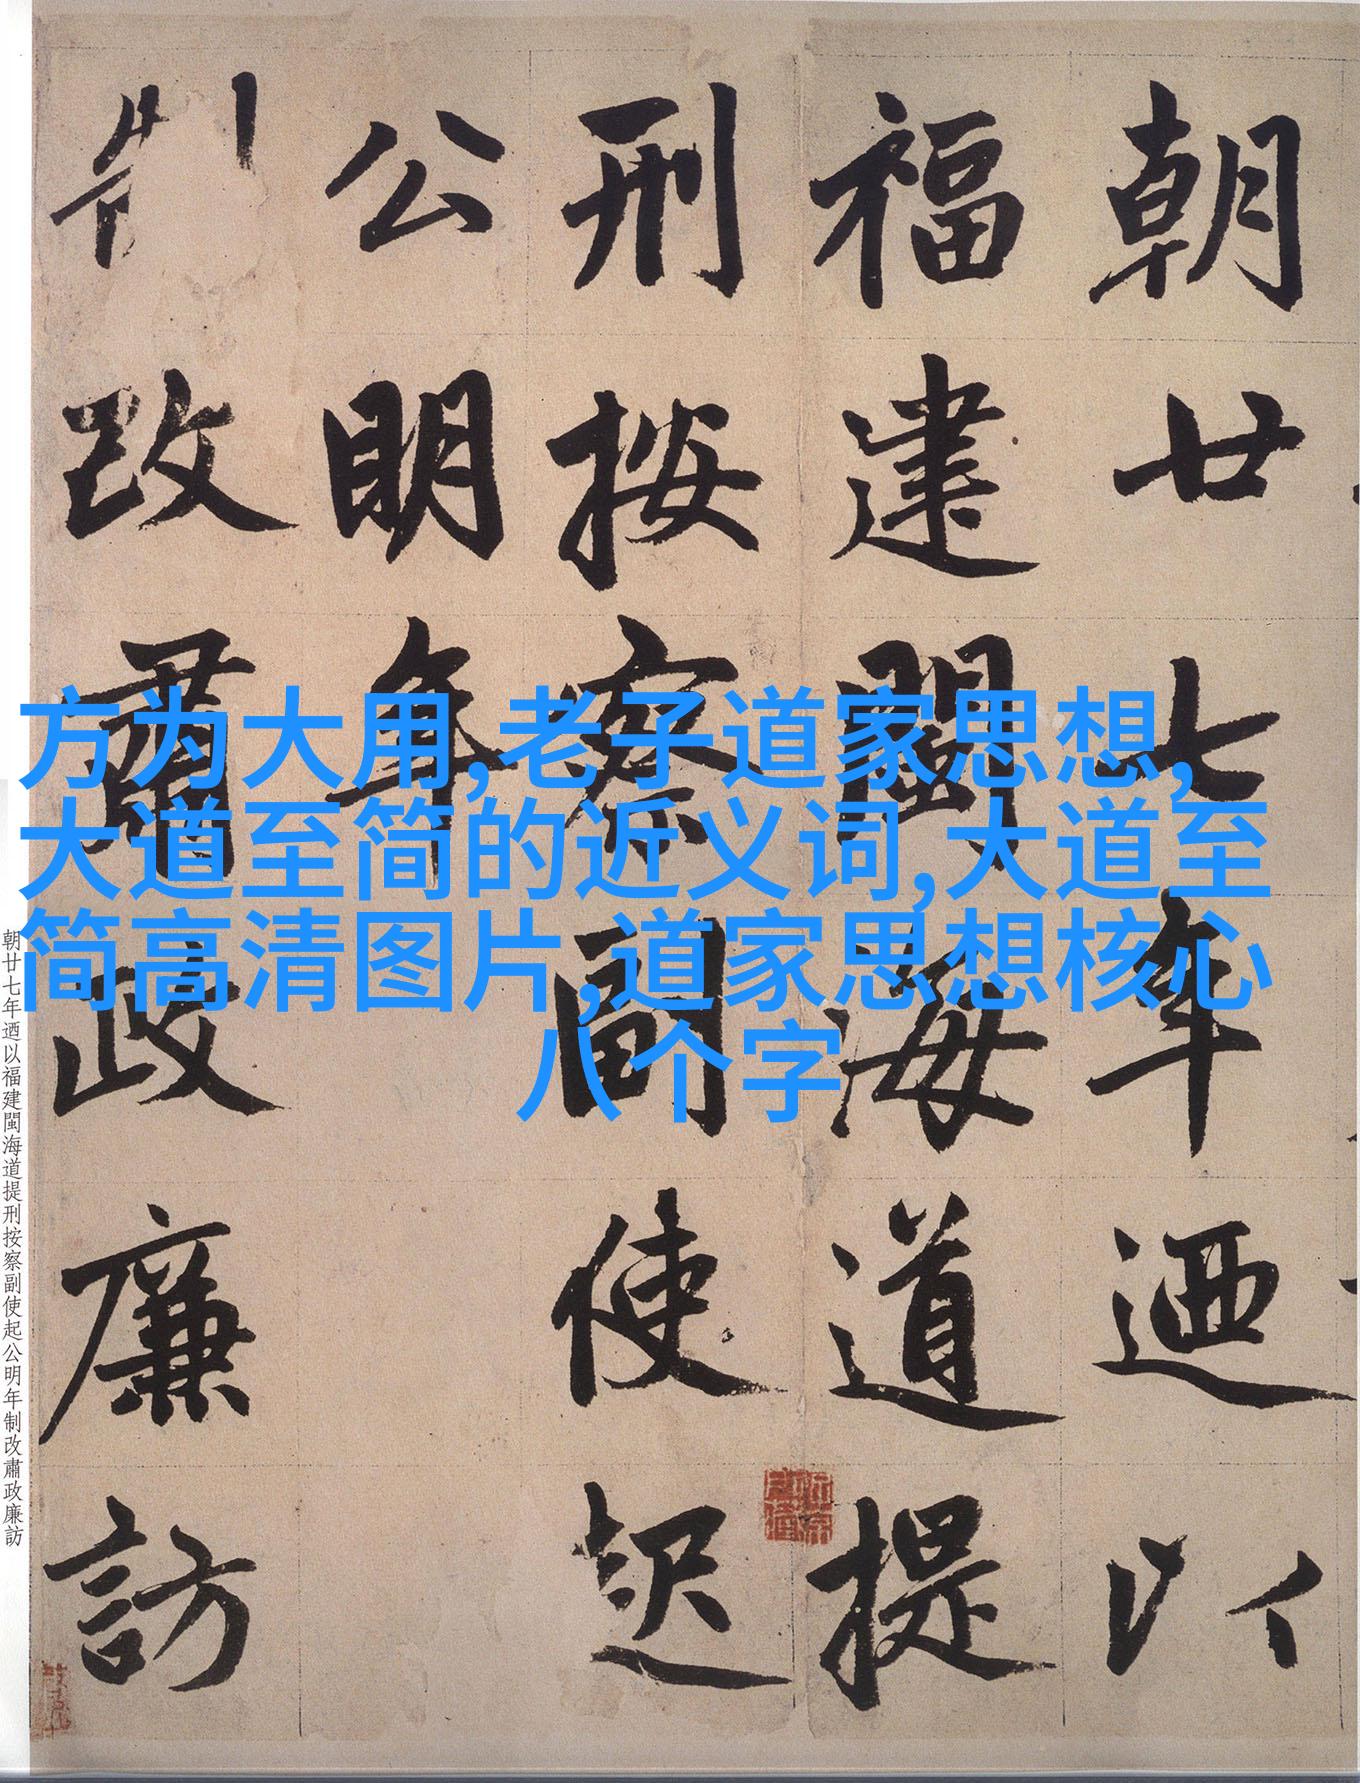 朝廿七年迺以
福建閩海道提
刑按察副使起
公明年
制改肅政廉訪
方为大用,老子道家思想,
大道至简的近义词,大道至
简高清图片,道家思想核心
八个字
朝廿七年迺以福建閩海道提刑按察副使起公明年制改肅政廉訪